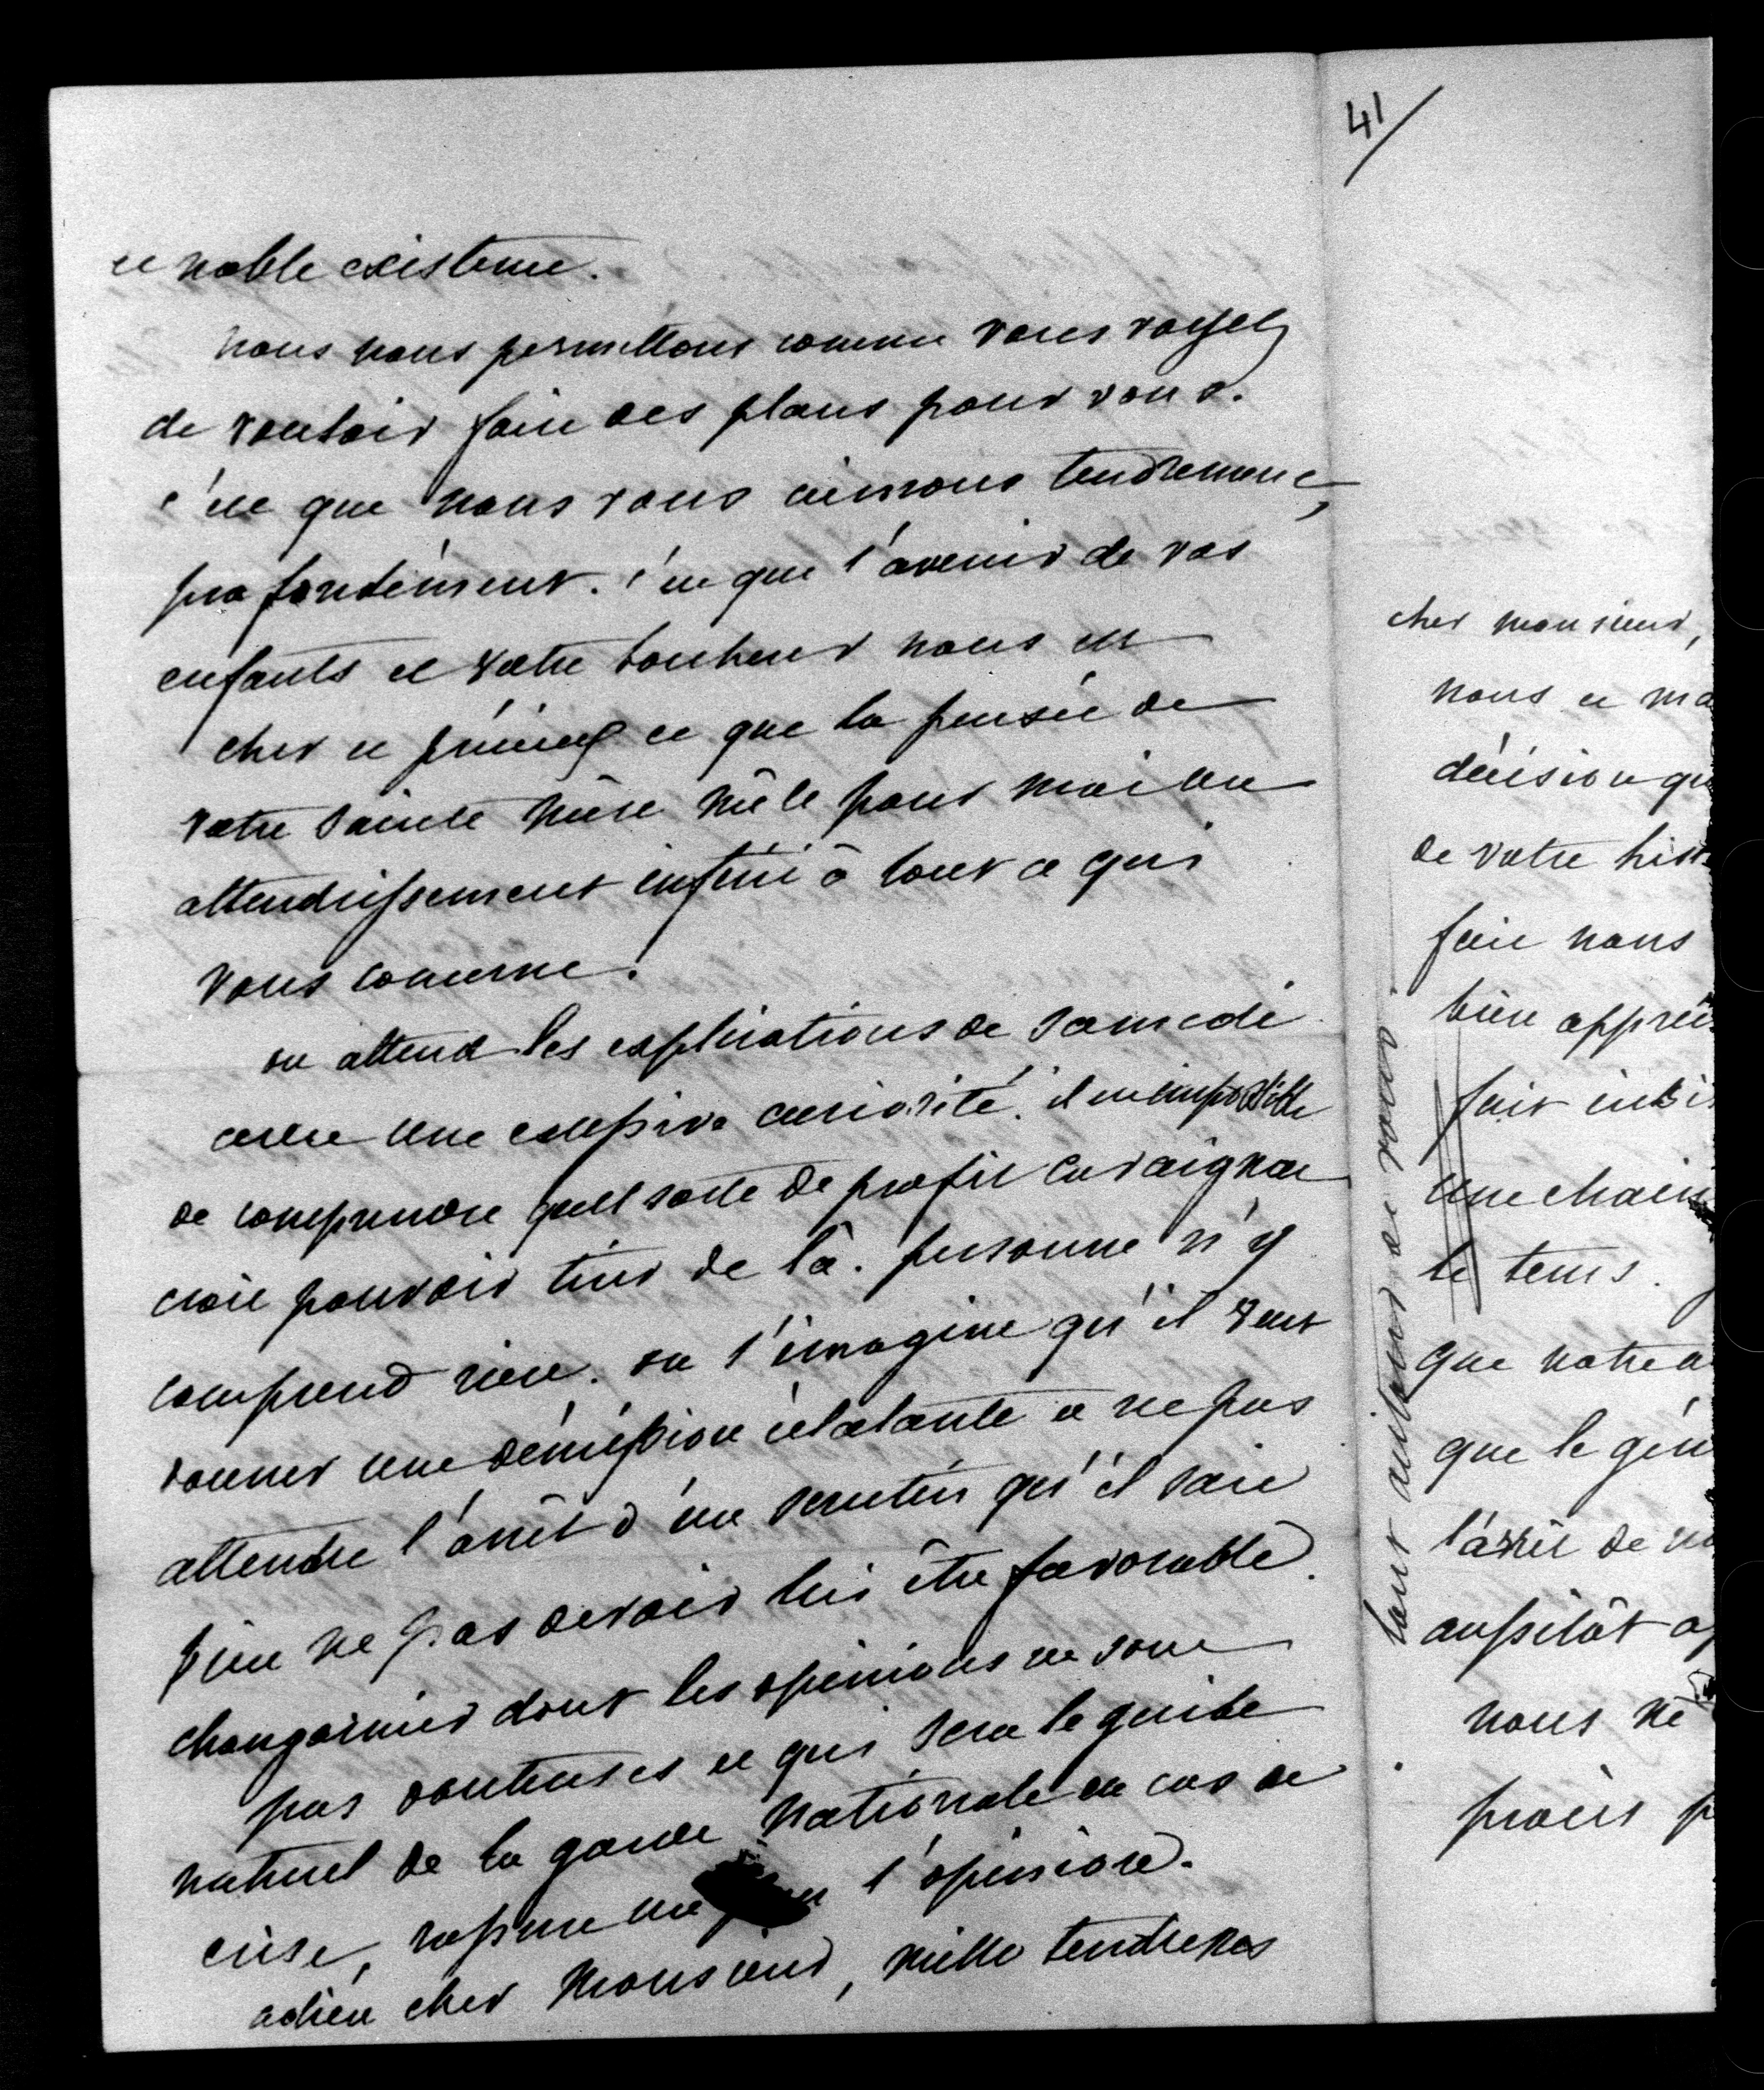 et noble existence.
nous nous permettons comme vous voyez
de vouloir faire des plans pour vous.
c'est que nous vous aimons tendrement,
profondément. c'est que l'avenir de vos
enfants et votre bonheur nous est
cher et précieux et que la pensée de
votre sainte mère mêle pour moi un
attendrissement infini à tout ce qui
vous concerne.
on attend les explications de samedi
avec une excessive curiosité. il est impossible
de comprendre quelle sorte de profit Cavaignac
croit pouvoir tirer de là. personne n'y
comprend rien. on s'imagine qu'il veut
donner une démission éclatante et ne pas
attendre l'arrêt d'un scrutin qu'il sait
bien ne pas devoir lui être favorable.
Changarnier dont les opinions ne sont
pas douteuses et qui sera le guide
naturel de la garde nationale en cas de
crise, rassure un peu l'opinion.
adieu cher Monsieur, mille tendresses
41
cher monsieur,
nous et ma
décision qu
de votre hist
faire nous
bien appréc
fait
une
le tems.
que notre a
que le gén
l'arrêt de
aussitôt a
nous ne
procès p
tout autour de vous